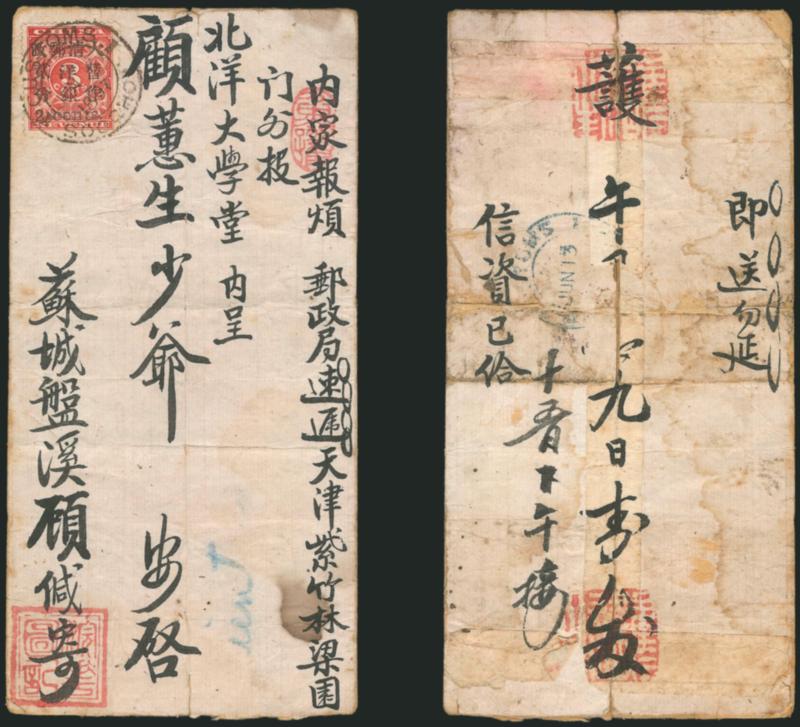 内家報煩 郵政局速遞天津紫竹林梁園
门外投
北洋大學堂 内呈
顧蕙生少爺 安啓
蘇城盤溪顧緘寄
大清郵政
CUSTOMS
2 cents
REVENUE
即送勿延
護
午
九日
發
信資已給
下午接
JUN 13